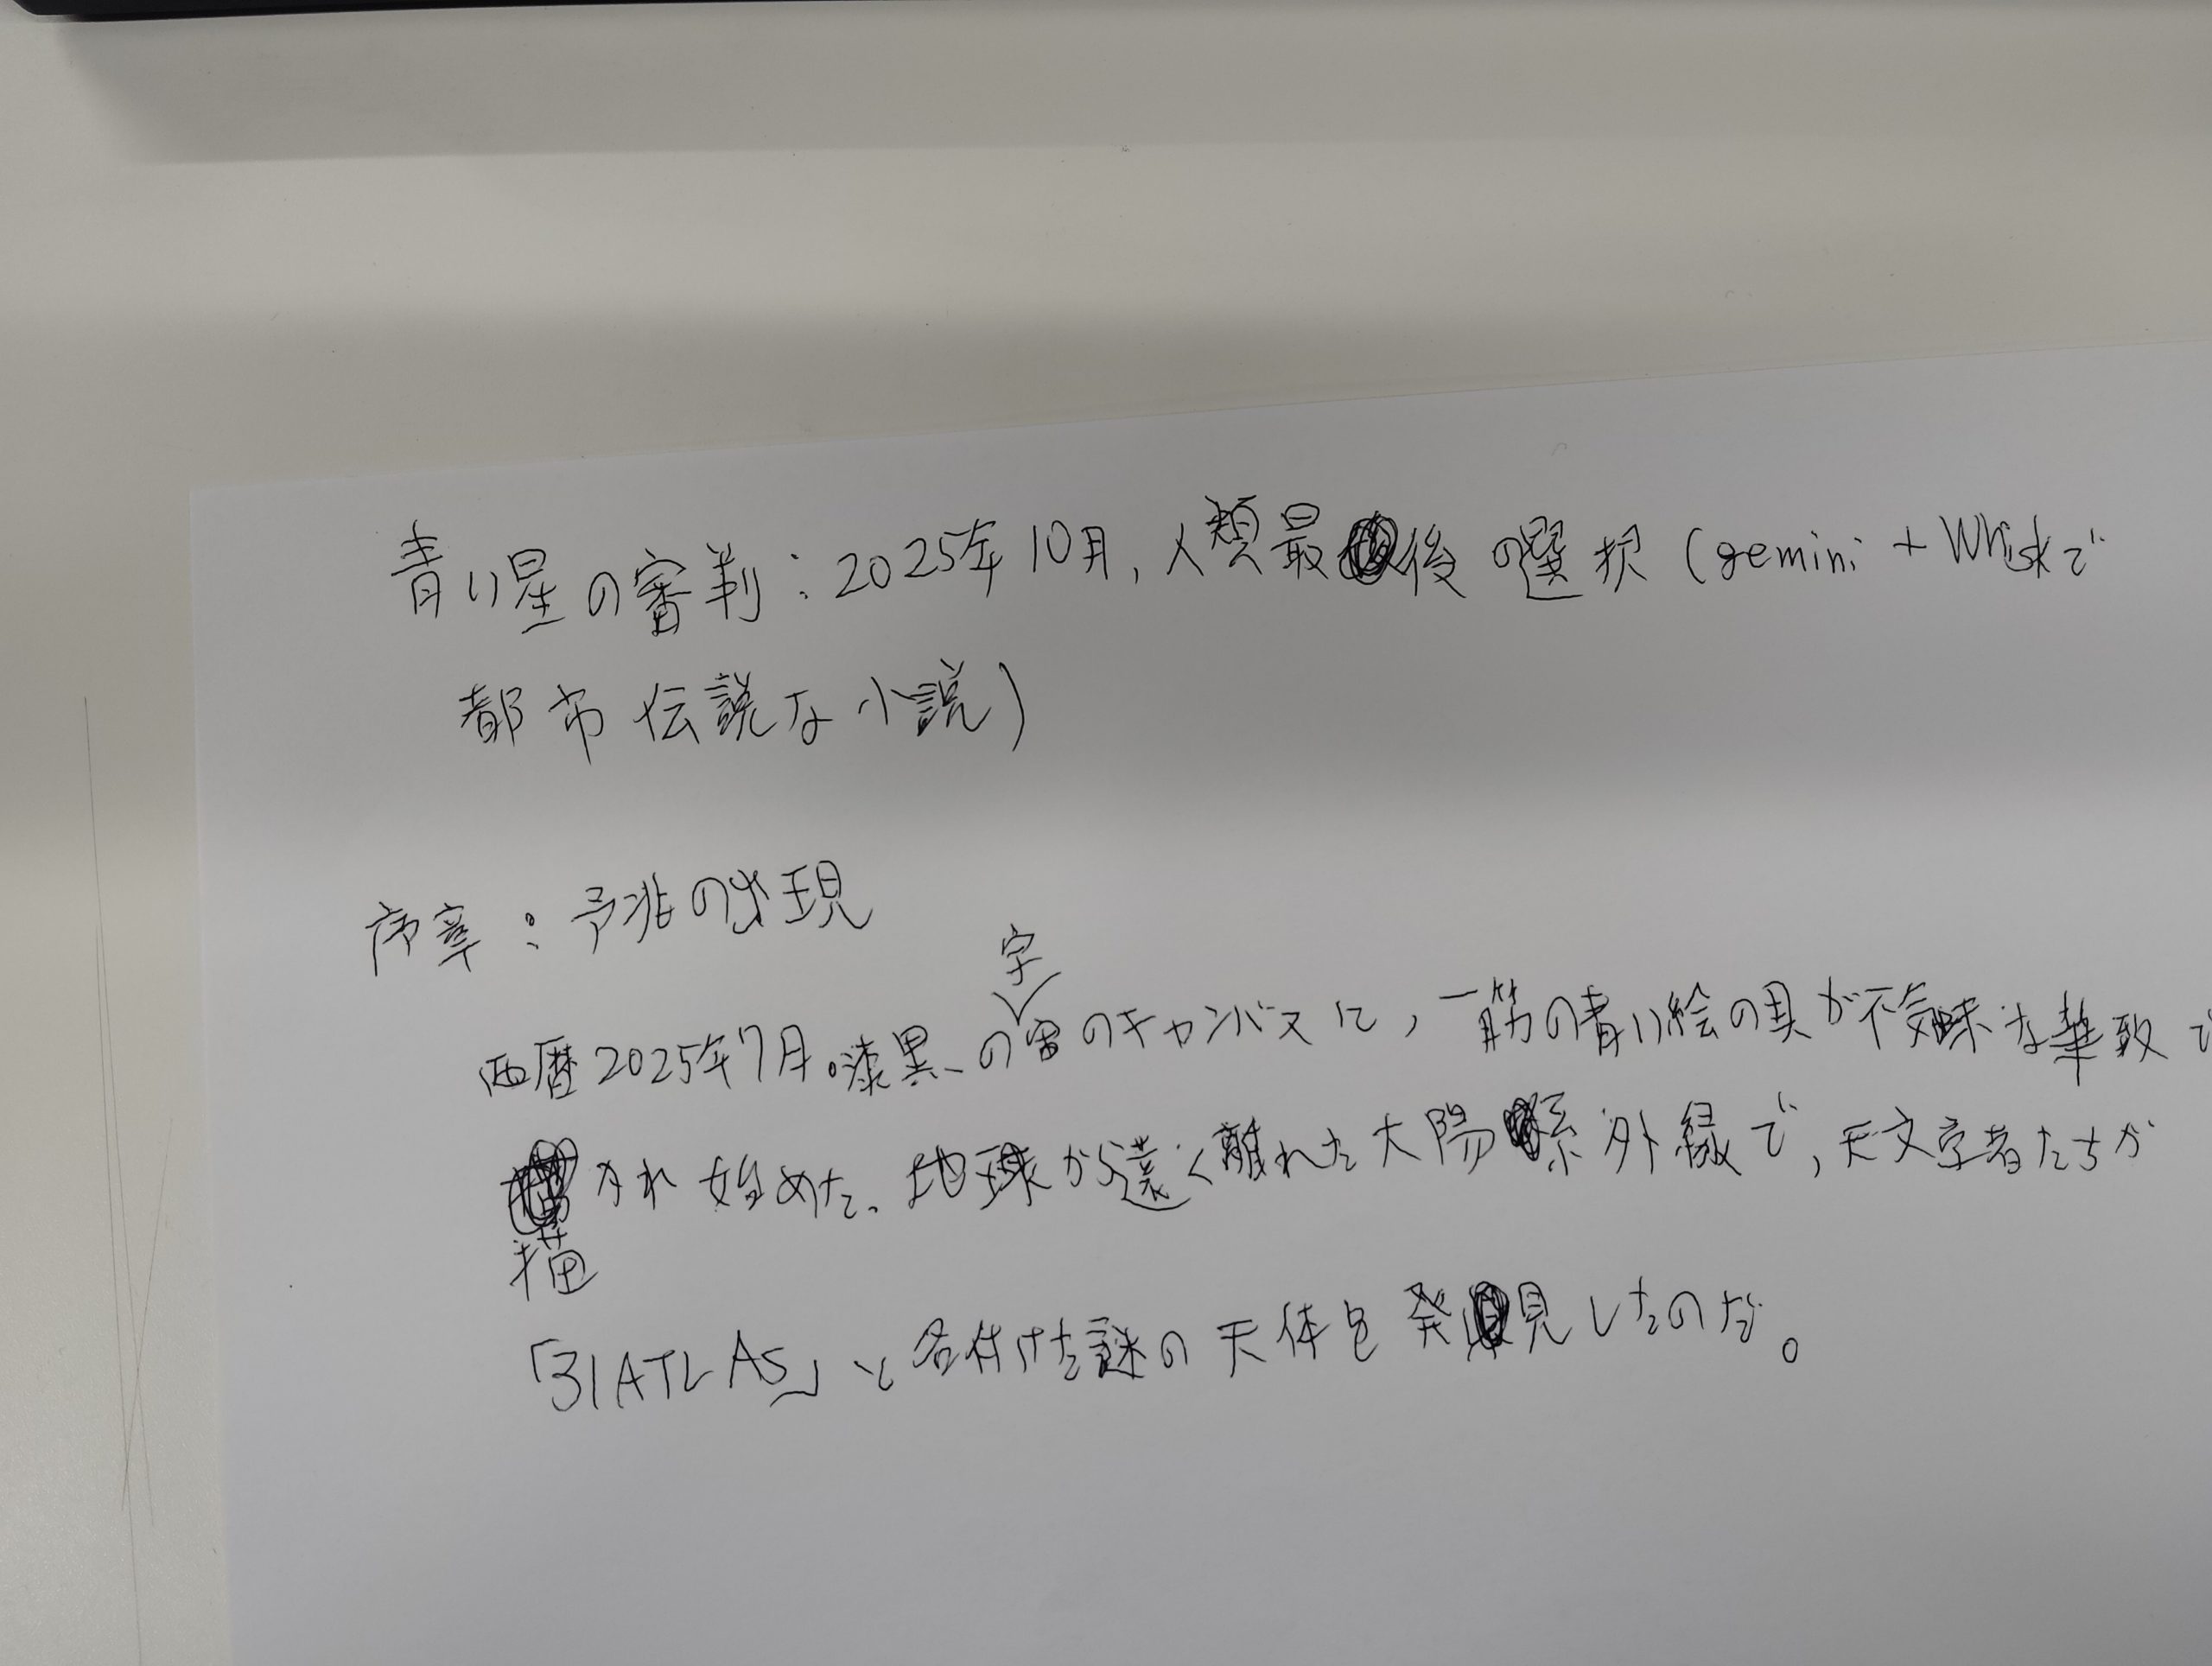 青い星の審判：2025年10月，人類最後の選択（gemini + Whiskで
都市伝説な小説）
序章：予兆の出現
西暦2025年7月。漆黒の宇宙のキャンバスに，一筋の青い絵の具が不気味な筆致で
描かれ始めた。地球から遠く離れた太陽系外縁で，天文学者たちが
「3I ATLAS」と名付けた謎の天体を発見したのだ。